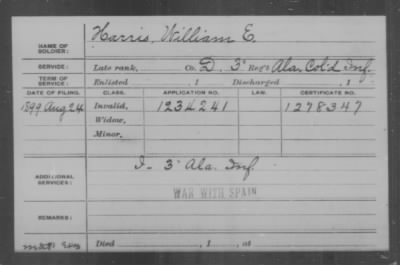 Harris, William E.
NAME OF SOLDIER:
SERVICE: Late rank, Co. D, 3" Reg't Ala. Col'd Inf.
TERM OF SERVICE: Enlisted , 1 Discharged , 1
DATE OF FILING. CLASS. APPLICATION NO. LAW. CERTIFICATE NO.
1899 Aug 24 Invalid, 1234241 1278347
Widow,
Minor,
ADDITIONAL SERVICES: I- 3" Ala. Inf.
WAR WITH SPAIN
REMARKS:
Died , 1 , at